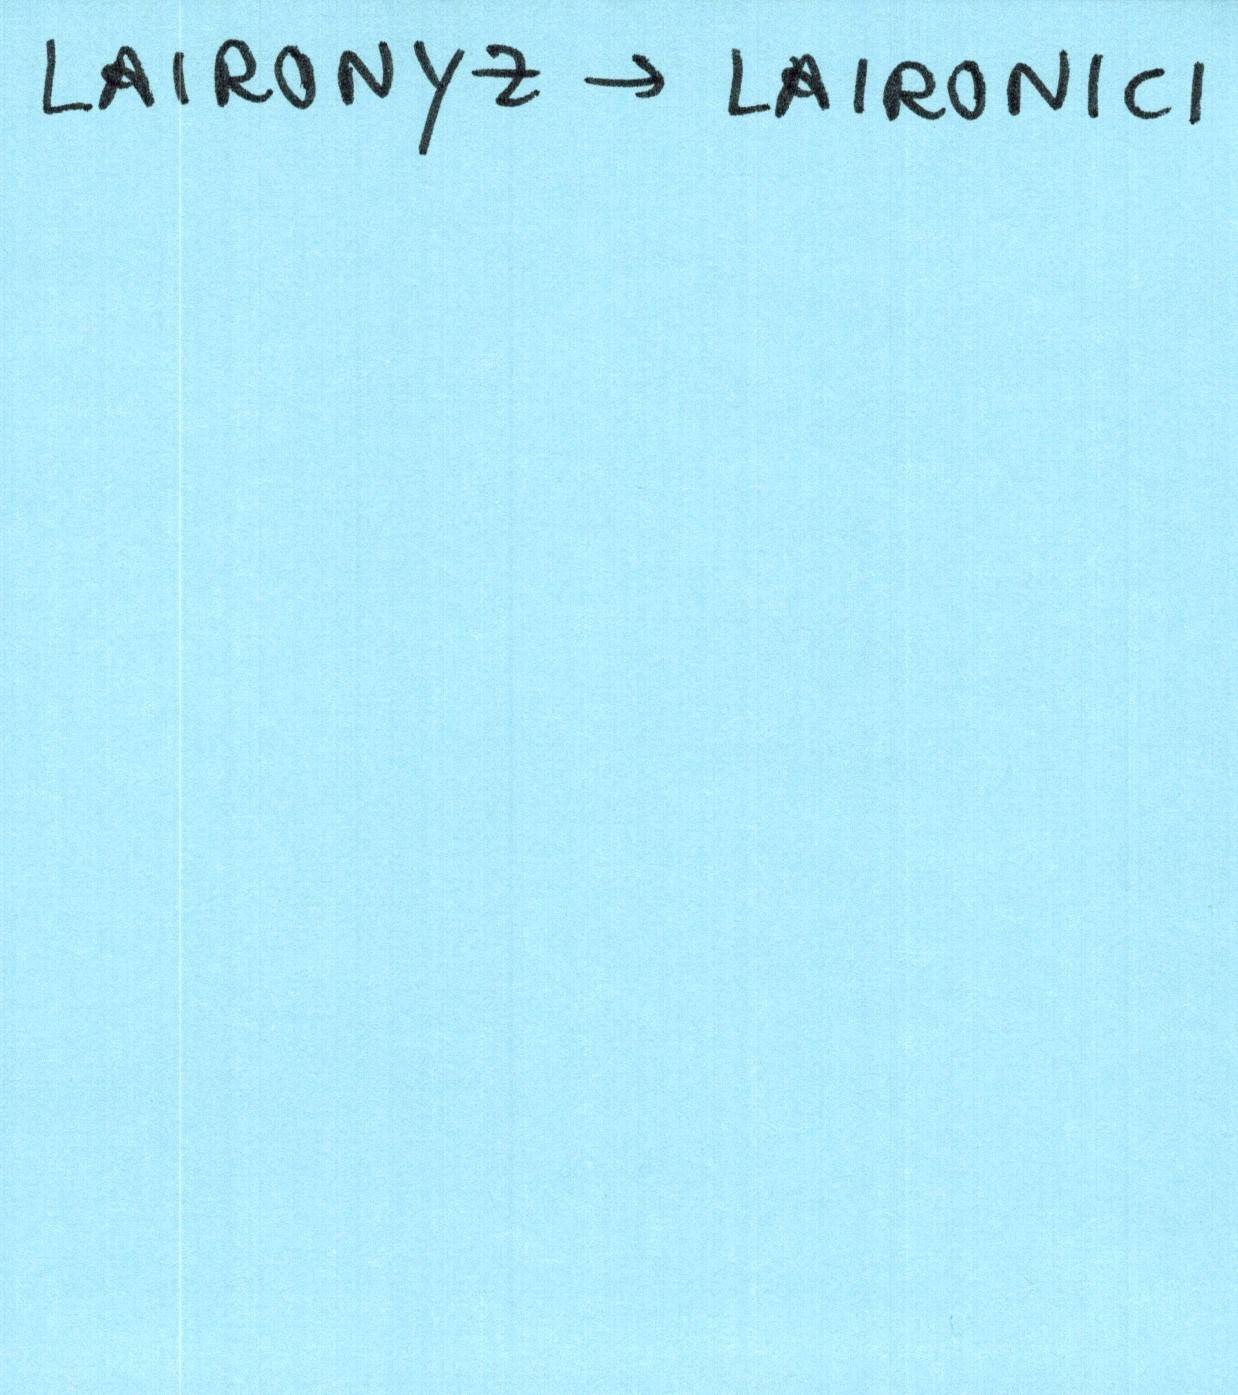 LAIRONYZ → LAIRONICI